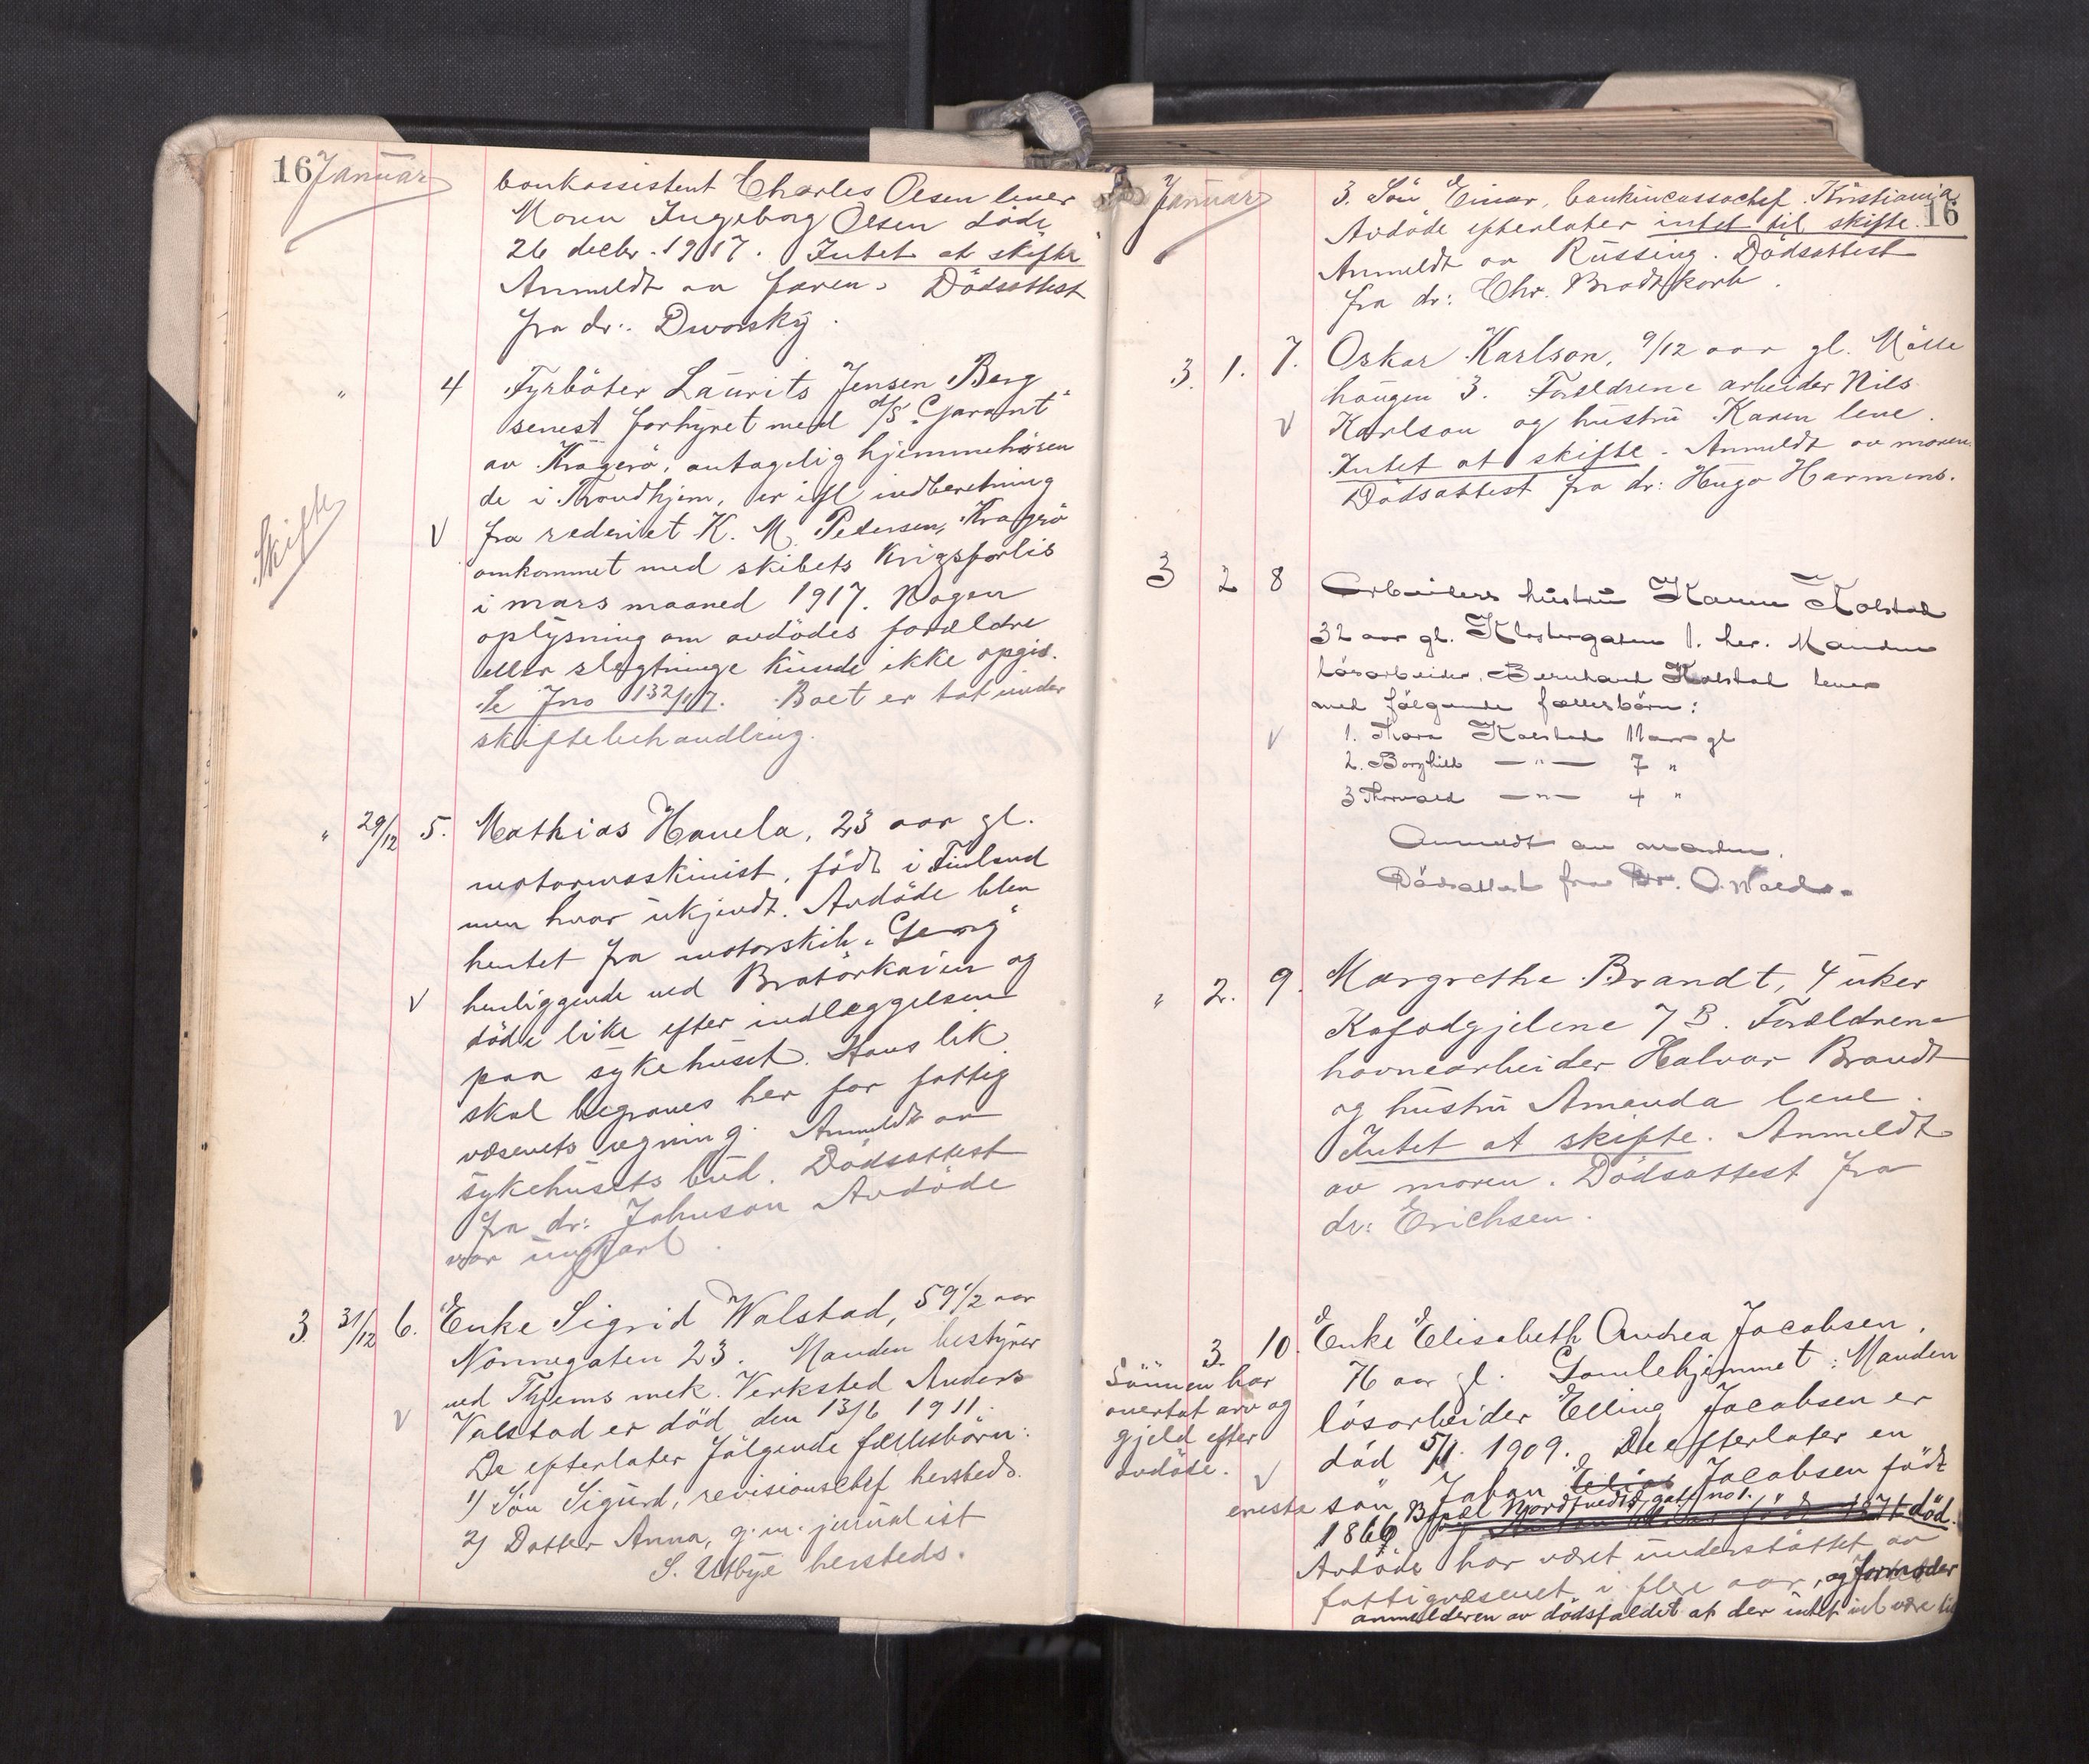 16 Januar
bankassistent Charles Olsen lever
Moren Ingeborg Olsen döde
26 decbr. 1917. Intet at skifte
Anmeldt av faren. Dödsattest
fra dr: Dworsky.
" 4 Fyrböter Laurits Jensen Berg
senest forhyret med d/s "Garant"
av Kragerö, antagelig hjemmehören
de i Trondhjem, er ifl indberetning
Skifte
V fra rederiet K. M. Pedersen, Kragerö
omkommet med skibets krigsforlis
i mars maaned 1917. Nogen
oplysning om avdödes forældre
eller slegtninge kunde ikke opgis.
Se Jno 132/17. Boet er tat under
skiftebehandling.
" 29/12 5. Mathias Havela, 23 aar gl.
motormaskinist, födt i Finland
men hvor ukjendt. Avdöde blev
hentet fra motorskib "Georg"
V henliggende ved Bratörkaien og
döde like efter indlæggelsen
paa sykehuset. Hans lik
skal begraves her for fattig
væsenets regning. Anmeldt av
sykehusets bud. Dödsattest
fra dr: Johnson Avdöde
var ungkarl.
3. 31/12 6. Enke Sigrid Walstad, 59 1/2 aar
Nonnegaten 23. Manden bestyrer
ved Thjems mek. Verksted Anders
V Valstad er död den 13/6 1911.
De efterlater fölgende fællesbörn:
1) Sön Sigurd, revisionschef hersteds.
2) Datter Anna, g. m. jurnalist
S. Utbye hersteds.
Januar 16
3. Sön Einar, bankincassochef. Kristiania
Avdöde efterlater intet til skifte.
Anmeldt av Russing. Dödsattest
fra dr: Chr. Brodtkorb.
3. 1. 7. Oskar Karlson, 9/12 aar gl. Mölle
haugen 3. Forældrene arbeider Nils
V Karlson og hustru Karen leve.
Intet at skifte. Anmeldt av moren.
Dödsattest fra dr: Hugo Harmens.
3 2 8 Arbeiders hustru Karen Kolstad
32 aar gl. Klostergaten 1. her. Manden
lösarbeider, Bernhard Kolstad lever
med fölgende fællesbörn:
V 1. Thora Kolstad 11 aar gl
2. Borghild —"— 7 "
3 Thorvald —"— 4 "
Anmeldt av manden.
Dödsattest fra Dr. O. Wald
" 2. 9. Margrethe Brandt, 4 uker
Kafadgjelene 7 B. Forældrene
havnearbeider Halvor Brandt
og hustru Amanda leve.
Intet at skifte. Anmeldt
av moren. Dödsattest fra
dr: Erichsen.
3. 10. Enke Elisabeth Andrea Jacobsen,
76 aar gl. Gamlehjemmet: Manden
lösarbeider Elling Jacobsen er
död 5/1. 1909. De efterlater en
Sönnen har
overtat arv og
gjeld efter
avdöde.
V eneste sön Johan Elias Jacobsen födt
1866 Bopæl Nordfuedsgatt no 1. 1871 död.
Avdöde har været understöttet av
fattigvæsenet i flere aar, og formoder
anmelderen av dödsfaldet at der intet vil være til